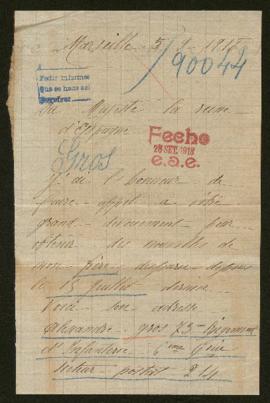 Marseille 5 / 9 1918
90044
Pedir informes
que se hace así
A sa Majesté la reine
d'Espagne
Fecho
28 SET. 1918
e.a.e.
Gros
J'ai l'honneur de
faire appel a votre
grand dévouement pour
obtenir des nouvelles de
mon frère disparu depuis
le 15 juillet dernier
Voici son adresse
Alexandre gros 73me Régiment
d'Infanterie 6ème Cie
secteur postal 24